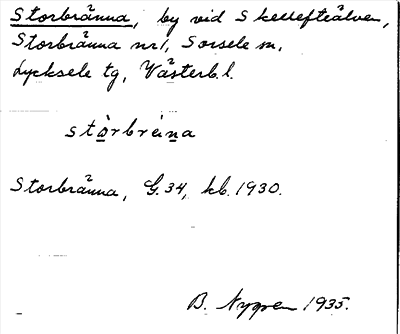 Storbränna, by vid Skellefteälven,
Storbränna nr 1, Sorsele sn,
Lycksele tg, Västerb. l.
Storbränna, G. 34, kb. 1930.
B. Nygren 1935.